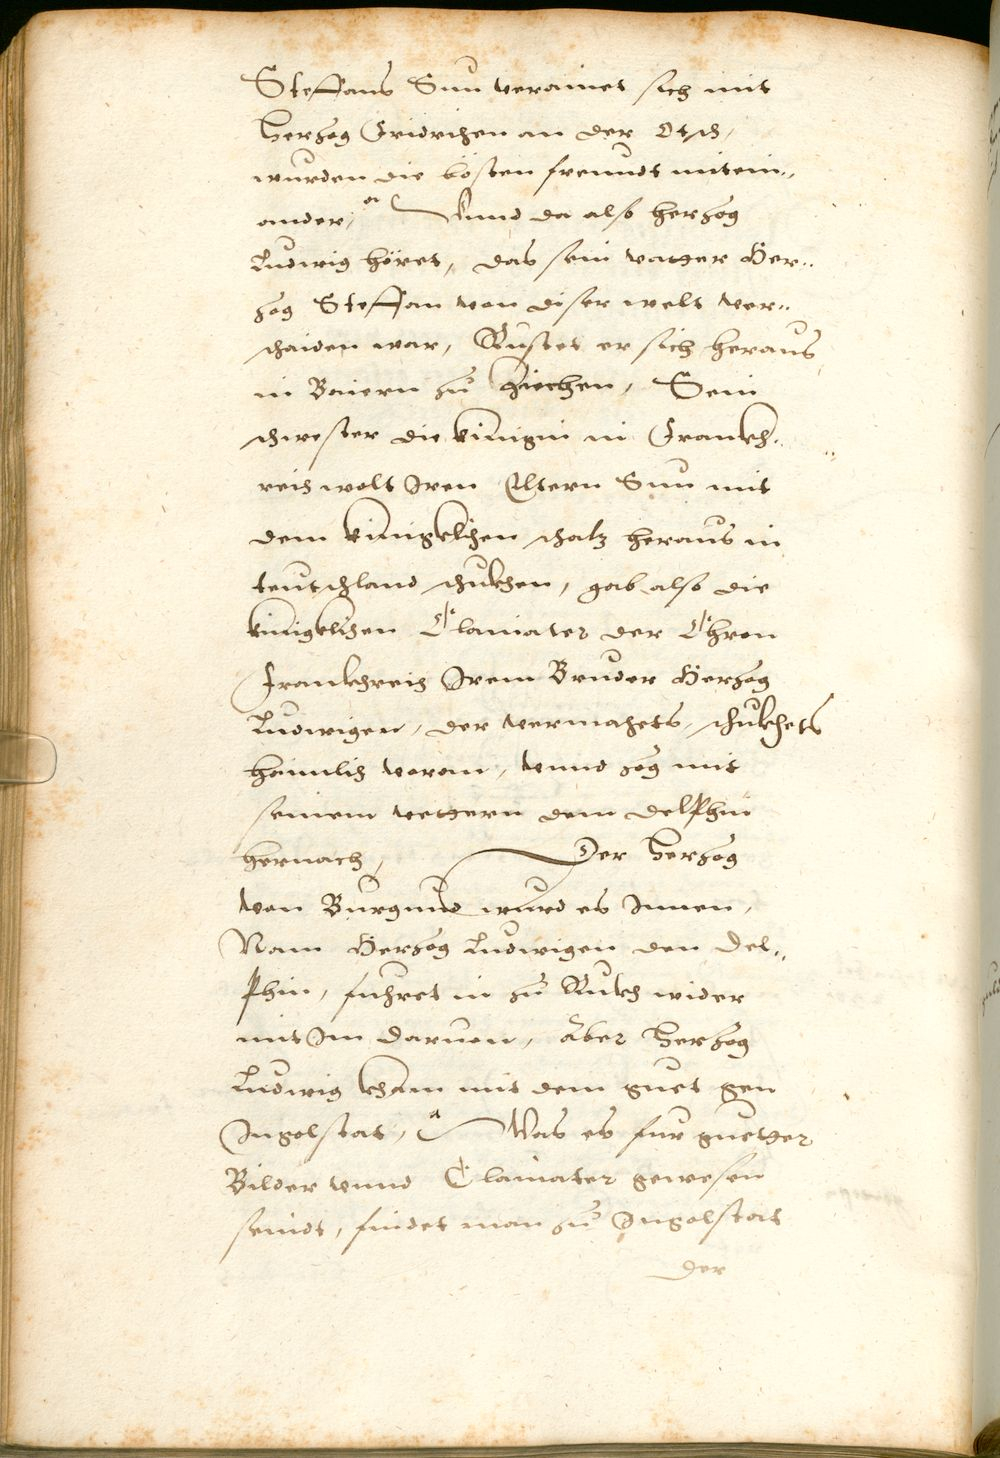 Steffans Sun verainet sich mit
Herzog Fridrichen an der Etsch,
wurden die bösten freundt mitein„
ander, Vnnd da also herzog
Ludwig höret, das sein vatter Her„
zog Steffan von diser welt ver„
schaiden war, Rustet er sich heraus
in Baiern zu ziechen, Sein
schwester die künigin in Frankh„
reich wolt Iren Eltern Sun mit
dem künigklichen schatz heraus in
teutschland schukhen, gab also die
künigklichen Clainater der Chron
Frankhreich Irem Bruder Herzog
Ludwigen, der vermachets, schukhets
haimlich voran, vnnd zog mit
seinem vettern dem Delphin
hernach, Der Herzog
von Burgund wurd es Innen,
Nam Herzog Ludwigen den Del„
phin, fuhret in zu Rukh wider
mit Im daruon, Aber Herzog
Ludwig kham mit dem guet gen
Ingolstat, Was es fur guetter
Bilder vnnd Clainater gewesen
seindt, findet man zu Ingolstat
der